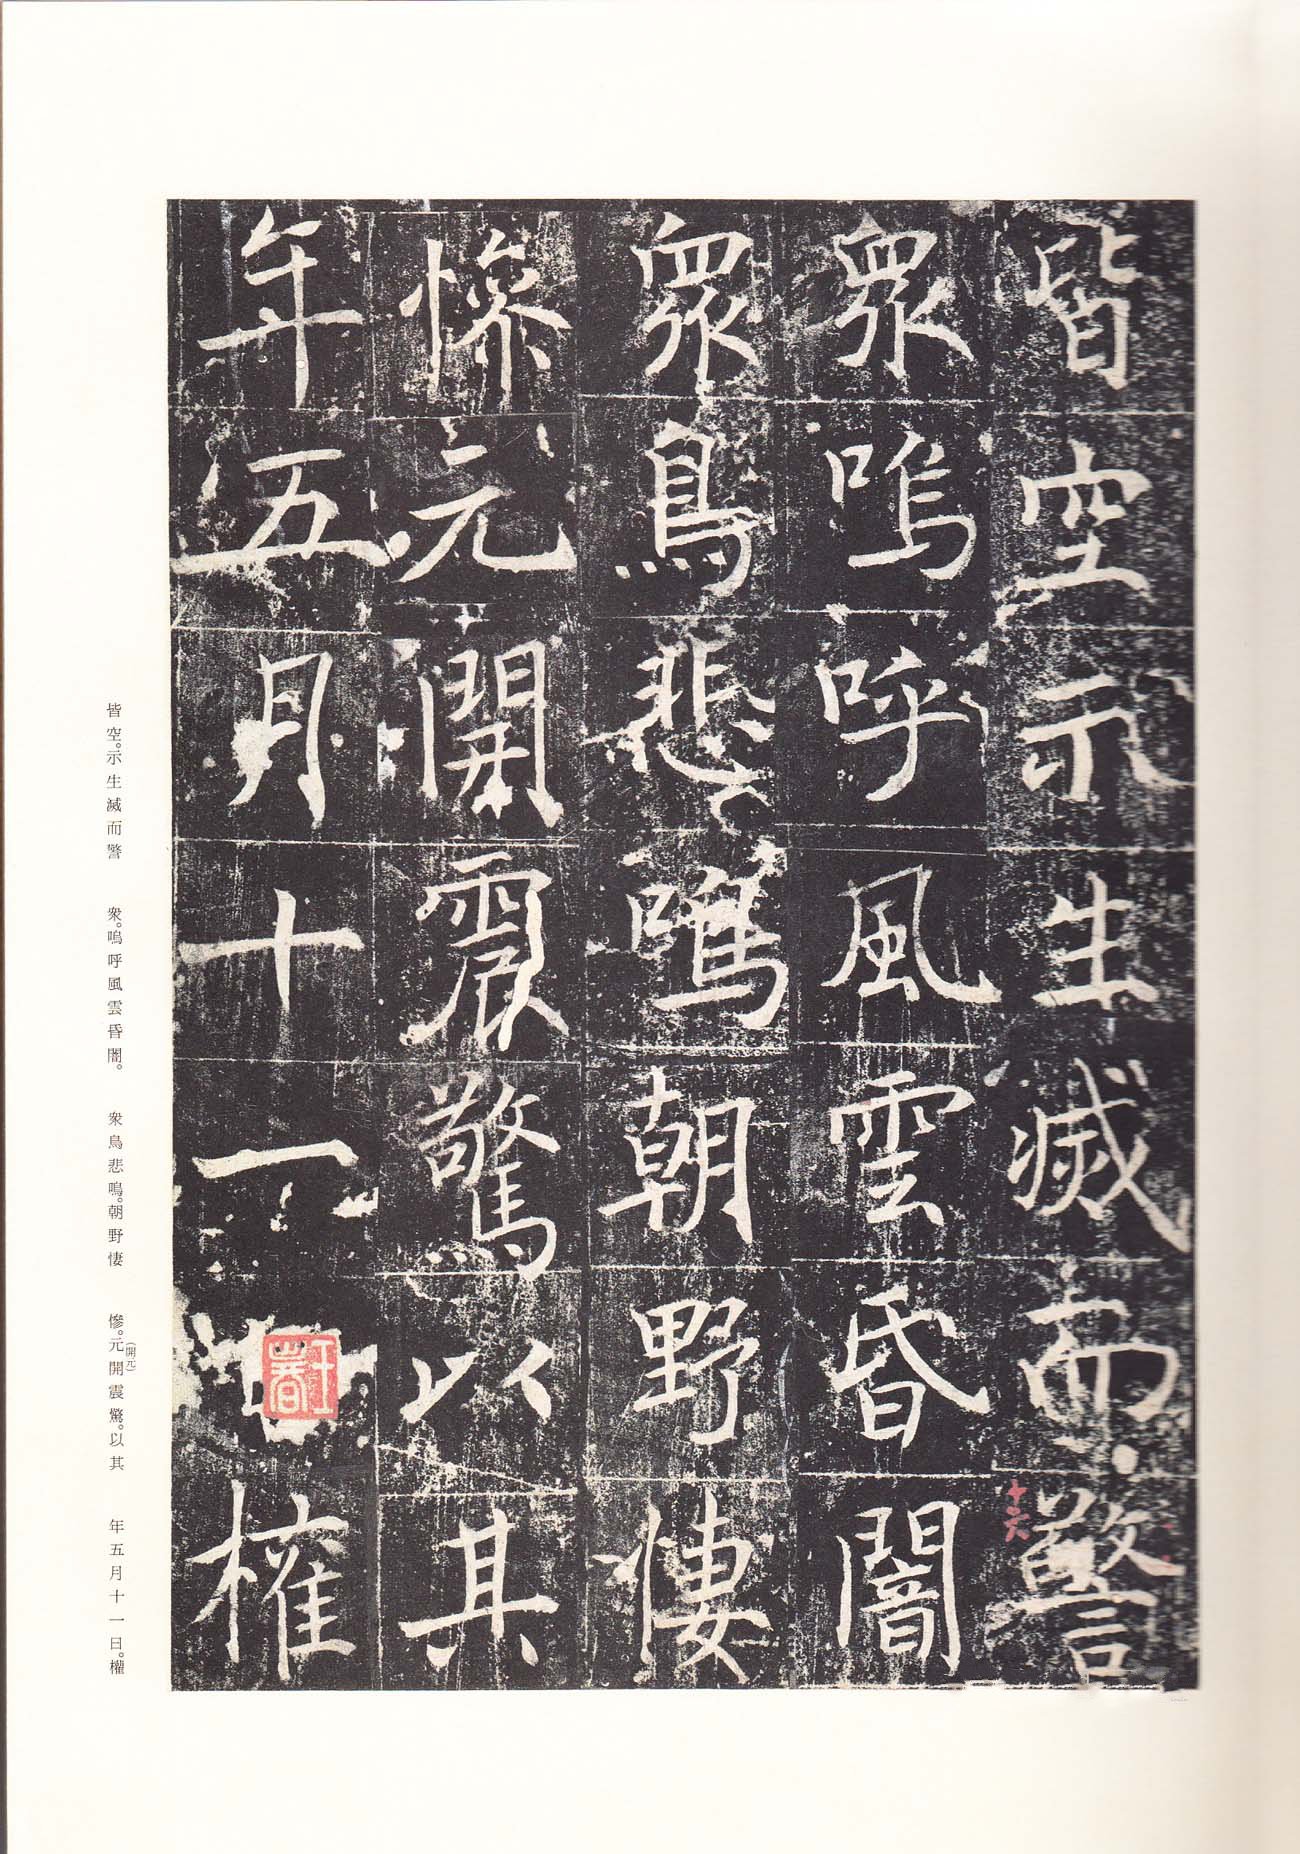 皆空示生滅而警
衆嗚呼風雲昏闇
衆鳥悲鳴朝野悽
慘元開震驚以其
年五月十一日權
十六
皆空。示生滅而警
衆。嗚呼風雲昏闇。
衆鳥悲鳴。朝野悽
慘。元開震驚。以其
(開元)
年五月十一日。權